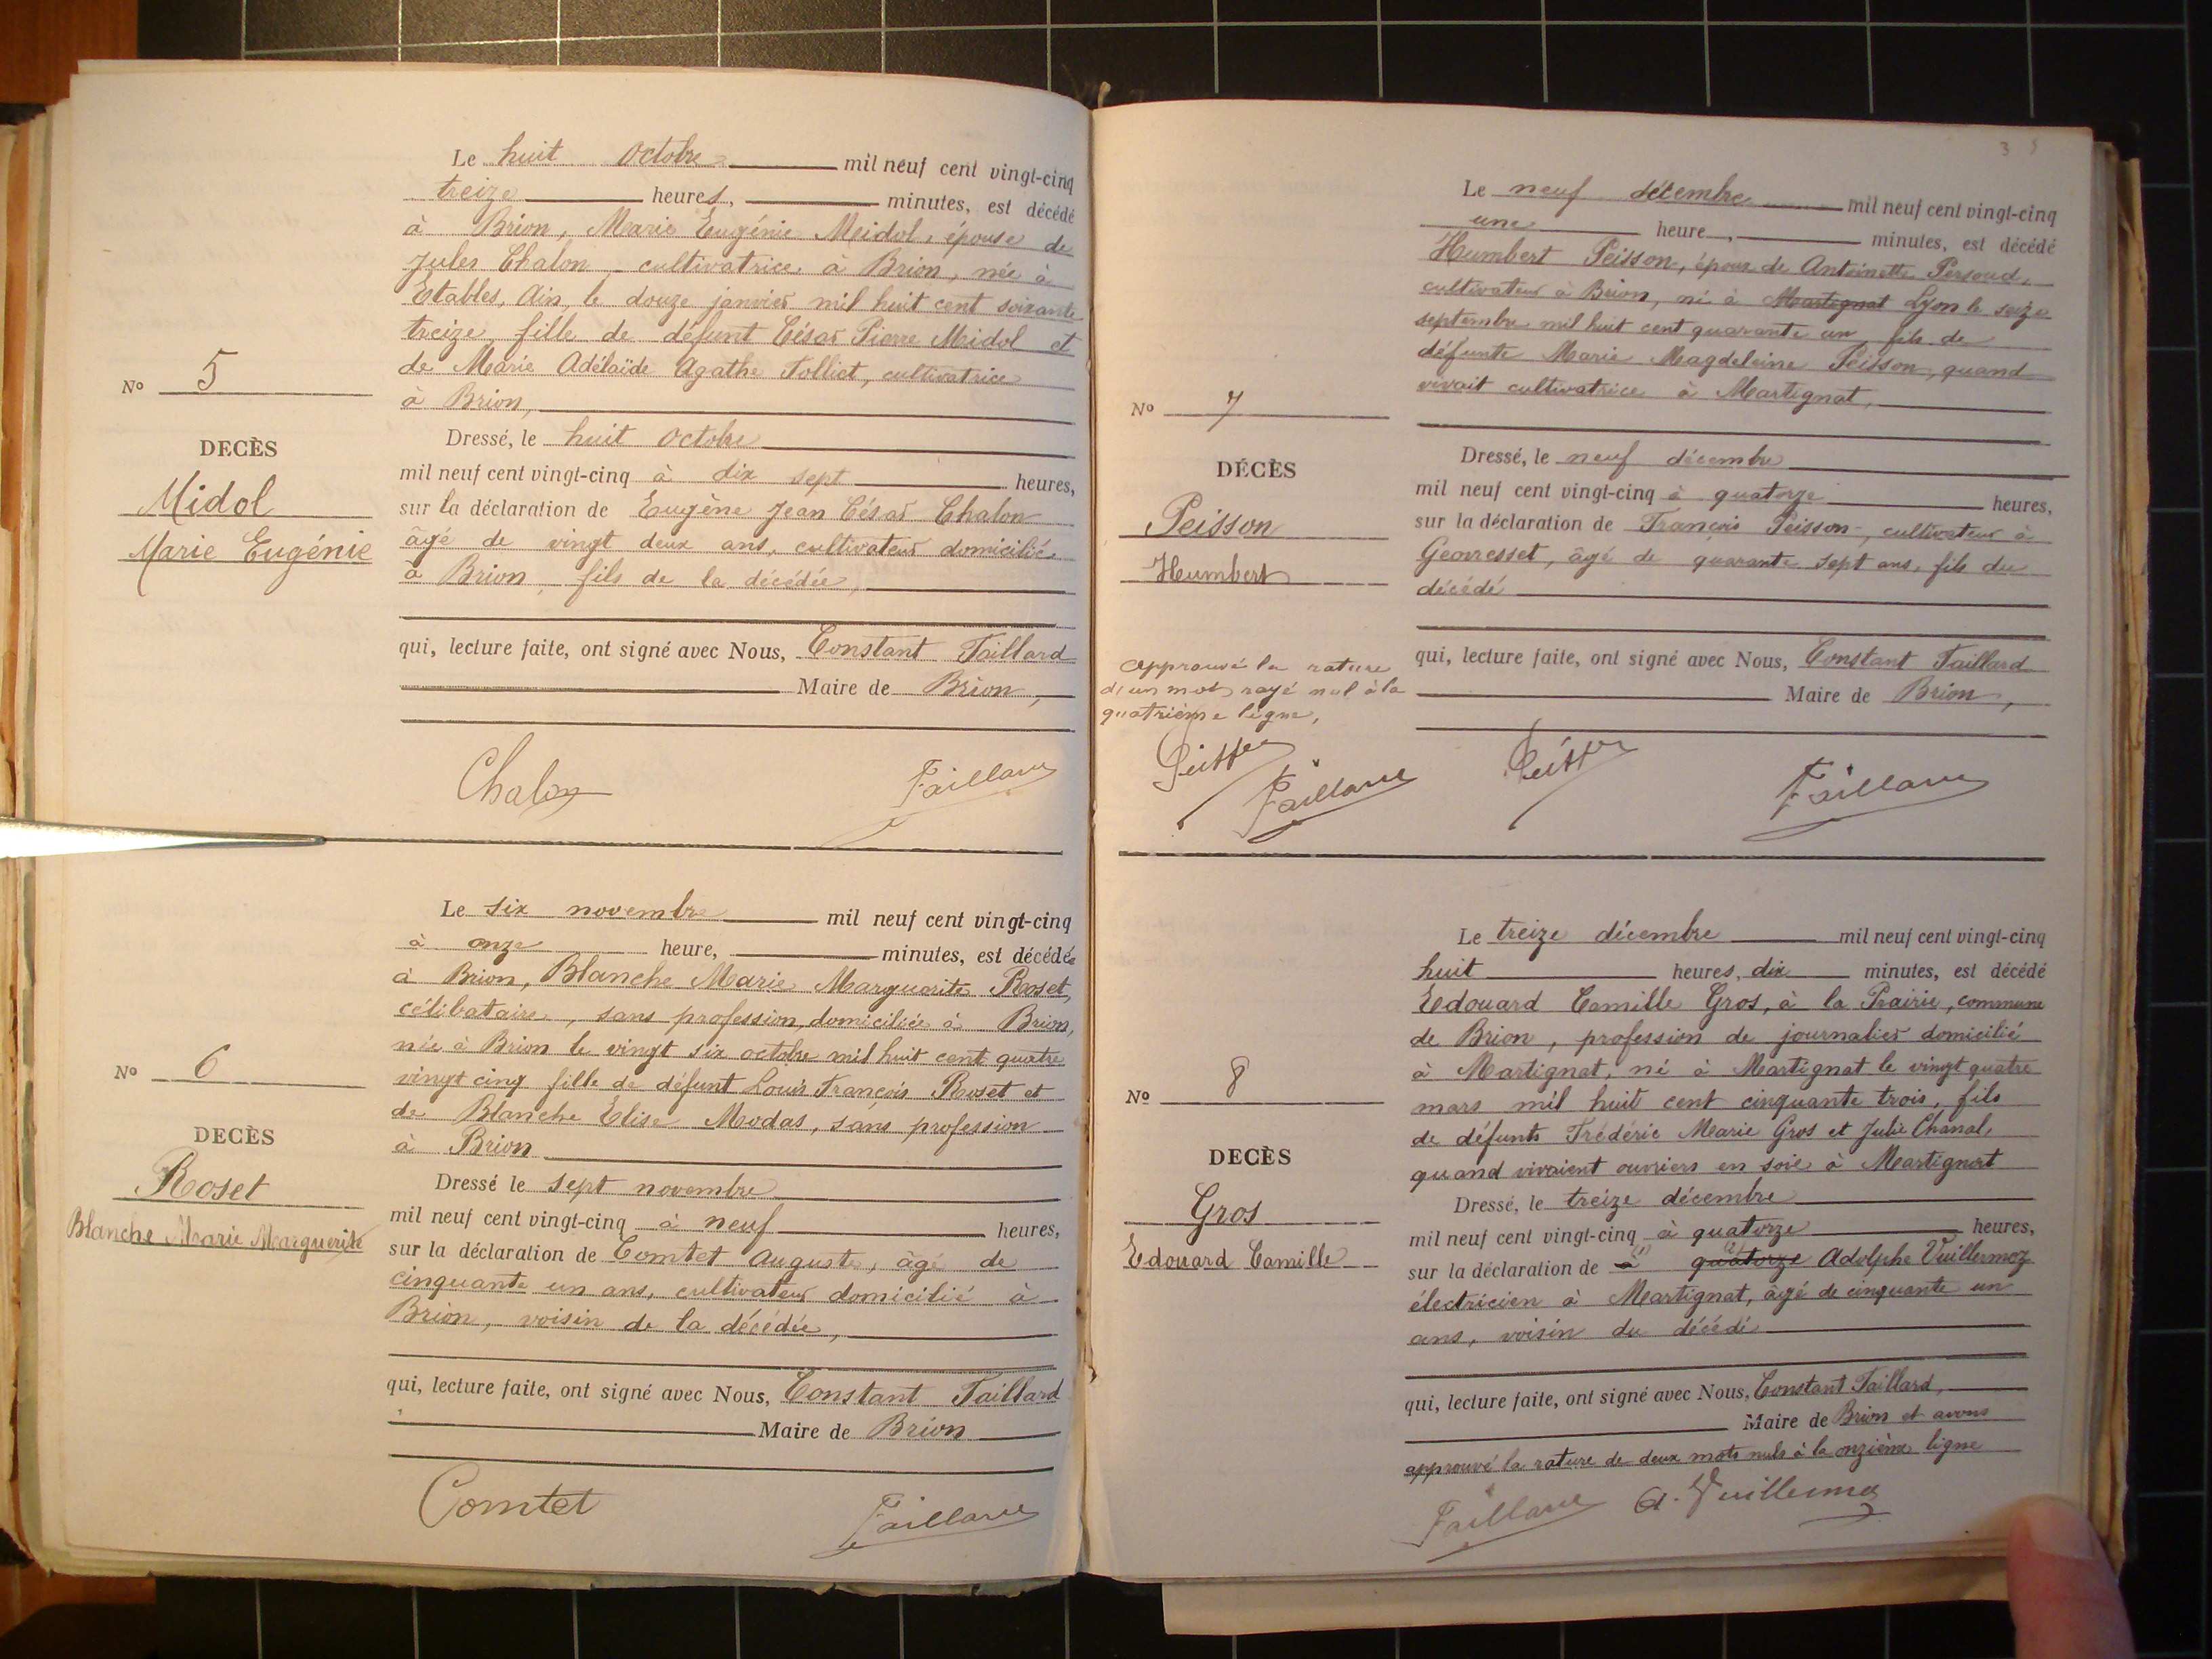 Le huit Octobre mil neuf cent vingt-cinq
treize heures, minutes, est décédé
à Brion, Marie Eugénie Midol, épouse de
Jules Chalon, cultivatrice à Brion, née à
Etables, Ain, le douze janvier mil huit cent soixante
treize, fille de défunt César Pierre Midol et
de Marie Adélaïde Agathe Tolliet, cultivatrice
à Brion,
Nº 5
DECÈS
Midol
Marie Eugénie
Dressé, le huit Octobre
mil neuf cent vingt-cinq à dix sept heures,
sur la déclaration de Eugène Jean César Chalon
âgé de vingt deux ans, cultivateur domicilié
à Brion, fils de la décédée,
qui, lecture faite, ont signé avec Nous, Constant Taillard
Maire de Brion,
Chalon Taillard
Le six novembre mil neuf cent vingt-cinq
à onze heure, minutes, est décédée
à Brion, Blanche Marie Marguerite Roset,
célibataire, sans profession, domiciliée à Brion,
née à Brion le vingt six octobre mil huit cent quatre
vingt cinq fille de défunt Louis François Roset et
de Blanche Elise Modas, sans profession
à Brion
Nº 6
DECÈS
Roset
Blanche Marie Marguerite
Dressé le sept novembre
mil neuf cent vingt-cinq à neuf heures,
sur la déclaration de Comtet Auguste, âgé de
cinquante un ans, cultivateur domicilié à
Brion, voisin de la décédée,
qui, lecture faite, ont signé avec Nous, Constant Taillard
Maire de Brion
Comtet Taillard
Le neuf décembre mil neuf cent vingt-cinq
une heure, minutes, est décédé
Humbert Peisson, époux de Antoinette Persoud,
cultivateur à Brion, né à Martignat Lyon le seize
septembre mil huit cent quarante un fils de
défunte Marie Magdeleine Peisson, quand
vivait cultivatrice à Martignat,
Nº 7
DÉCÈS
Peisson
Humbert
Dressé, le neuf décembre
mil neuf cent vingt-cinq à quatorze heures,
sur la déclaration de François Peisson, cultivateur à
Geovresset, âgé de quarante sept ans, fils du
décédé
qui, lecture faite, ont signé avec Nous, Constant Taillard
Maire de Brion,
approuvé la rature
d'un mot rayé nul à la
quatrième ligne,
Peisson Taillard Peisson Taillard
Le treize décembre mil neuf cent vingt-cinq
huit heures, dix minutes, est décédé
Edouard Camille Gros, à la Prairie, commune
de Brion, profession de journalier domicilié
à Martignat, né à Martignat le vingt quatre
mars mil huit cent cinquante trois, fils
de défunts Frédéric Marie Gros et Julie Chanal,
quand vivaient ouvriers en soie à Martignat
Nº 8
DECÈS
Gros
Edouard Camille
Dressé, le treize décembre
mil neuf cent vingt-cinq à quatorze heures,
sur la déclaration de à (1) quatorze (2) Adolphe Vuillermoz
électricien à Martignat, âgé de cinquante un
ans, voisin du décédé
qui, lecture faite, ont signé avec Nous, Constant Taillard,
Maire de Brion et avons
approuvé la rature de deux mots nuls à la onzième ligne
Taillard A. Vuillermoz